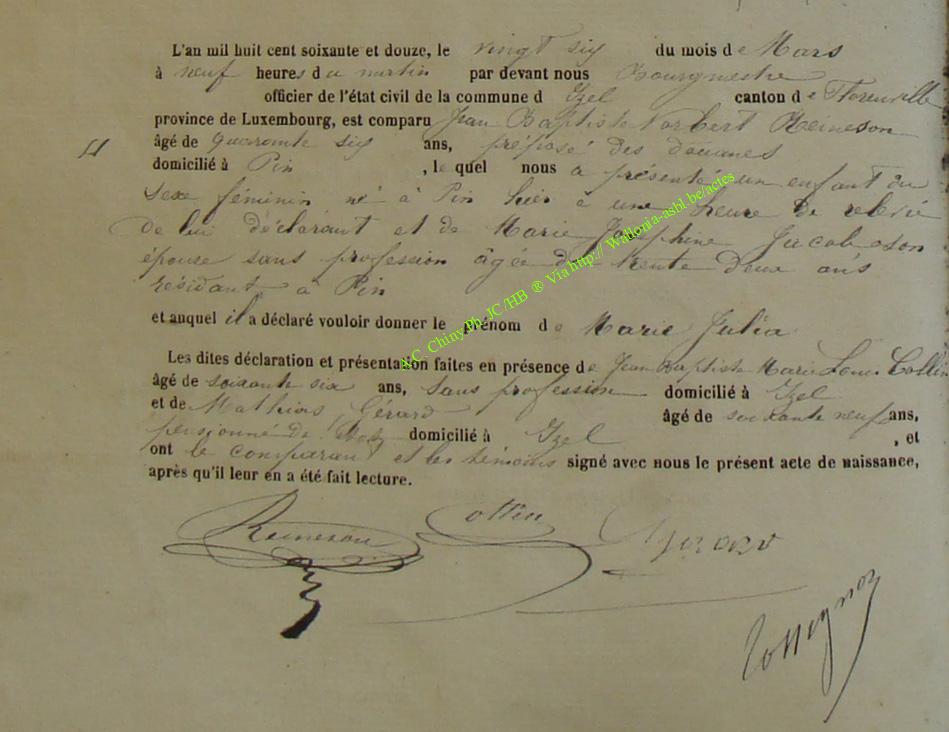 L'an mil huit cent soixante et douze, le vingt six du mois de Mars
à neuf heures du matin par devant nous Bourgmestre
officier de l'état civil de la commune d Izel canton de Florenville
province de Luxembourg, est comparu Jean Baptiste Norbert Reineson
11 âgé de quarante six ans, préposé des douanes
domicilié à Pin , lequel nous a présenté un enfant du
sexe féminin né à Pin hier à une heure de relevé
de lui déclarant et de Marie Josephine Jacobson
épouse sans profession âgée de trente deux ans
résidant à Pin
et auquel il a déclaré vouloir donner le prénom de Marie Julia
Les dites déclaration et présentation faites en présence de Jean Baptiste Marie Louis Collin
âgé de soixante six ans, sans profession domicilié à Izel
et de Mathias Gérard âgé de soixante neuf ans,
pensionné de domicilié à Izel , et
ont le comparant et les témoins signé avec nous le présent acte de naissance,
après qu'il leur en a été fait lecture.
Reineson Collin Gerard
Rossignon
S.C ChinyPh JC/HB ® Via http://Wallonia-asbl.be/actes